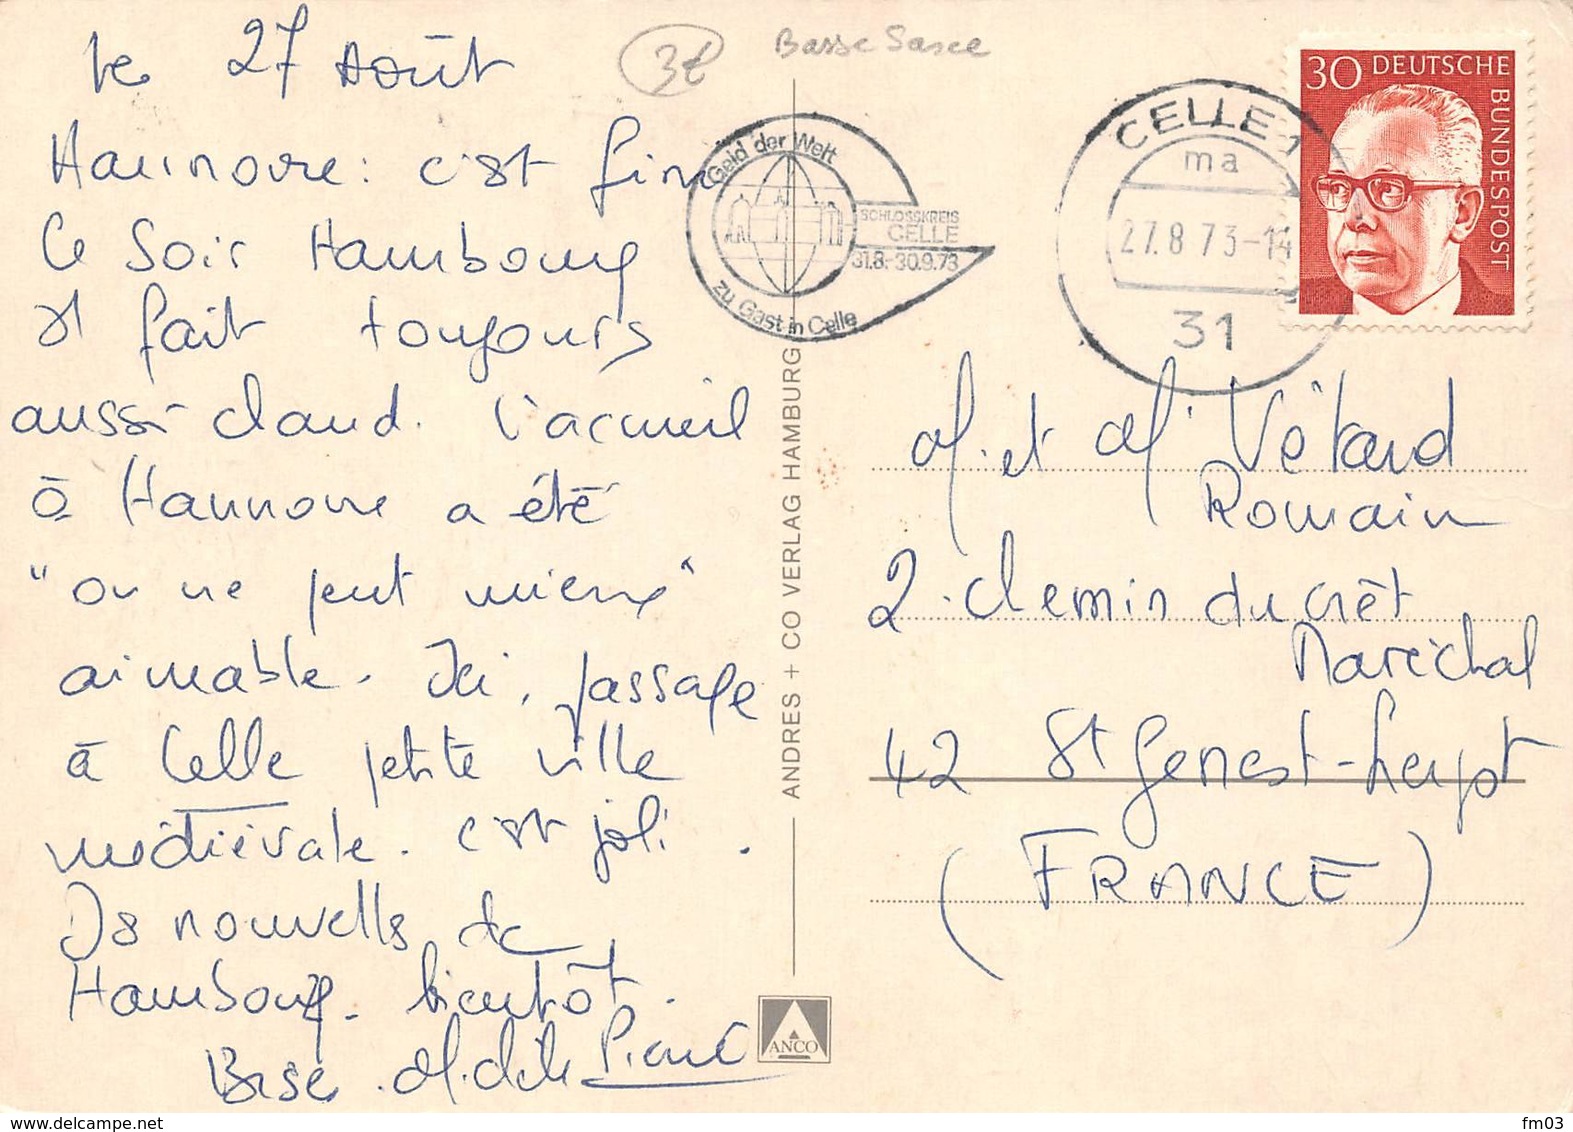 le 27 Août
Hannovre : c'est fini
Ce Soir Hambourg
Il fait toujours
aussi chaud. L'accueil
à Hannovre a été
"on ne peut mieux"
aimable. Ici, passage
à Celle petite ville
médiévale. C'est joli.
Ds nouvelles de
Hambourg. bientôt.
Bises.
Pierre
3€
Basse Saxe
Geld der Welt
SCHLOSSKREIS
CELLE
31.8.-30.9.73
zu Gast in Celle
CELLE 1
ma
27.8.73-14
31
30 DEUTSCHE
BUNDESPOST
ANDRES + CO VERLAG HAMBURG
ANCO
M. et Mme Vétard
Romain
2. chemin du crêt
Maréchal
42 St Genest-Lerpt
(FRANCE)
fm03